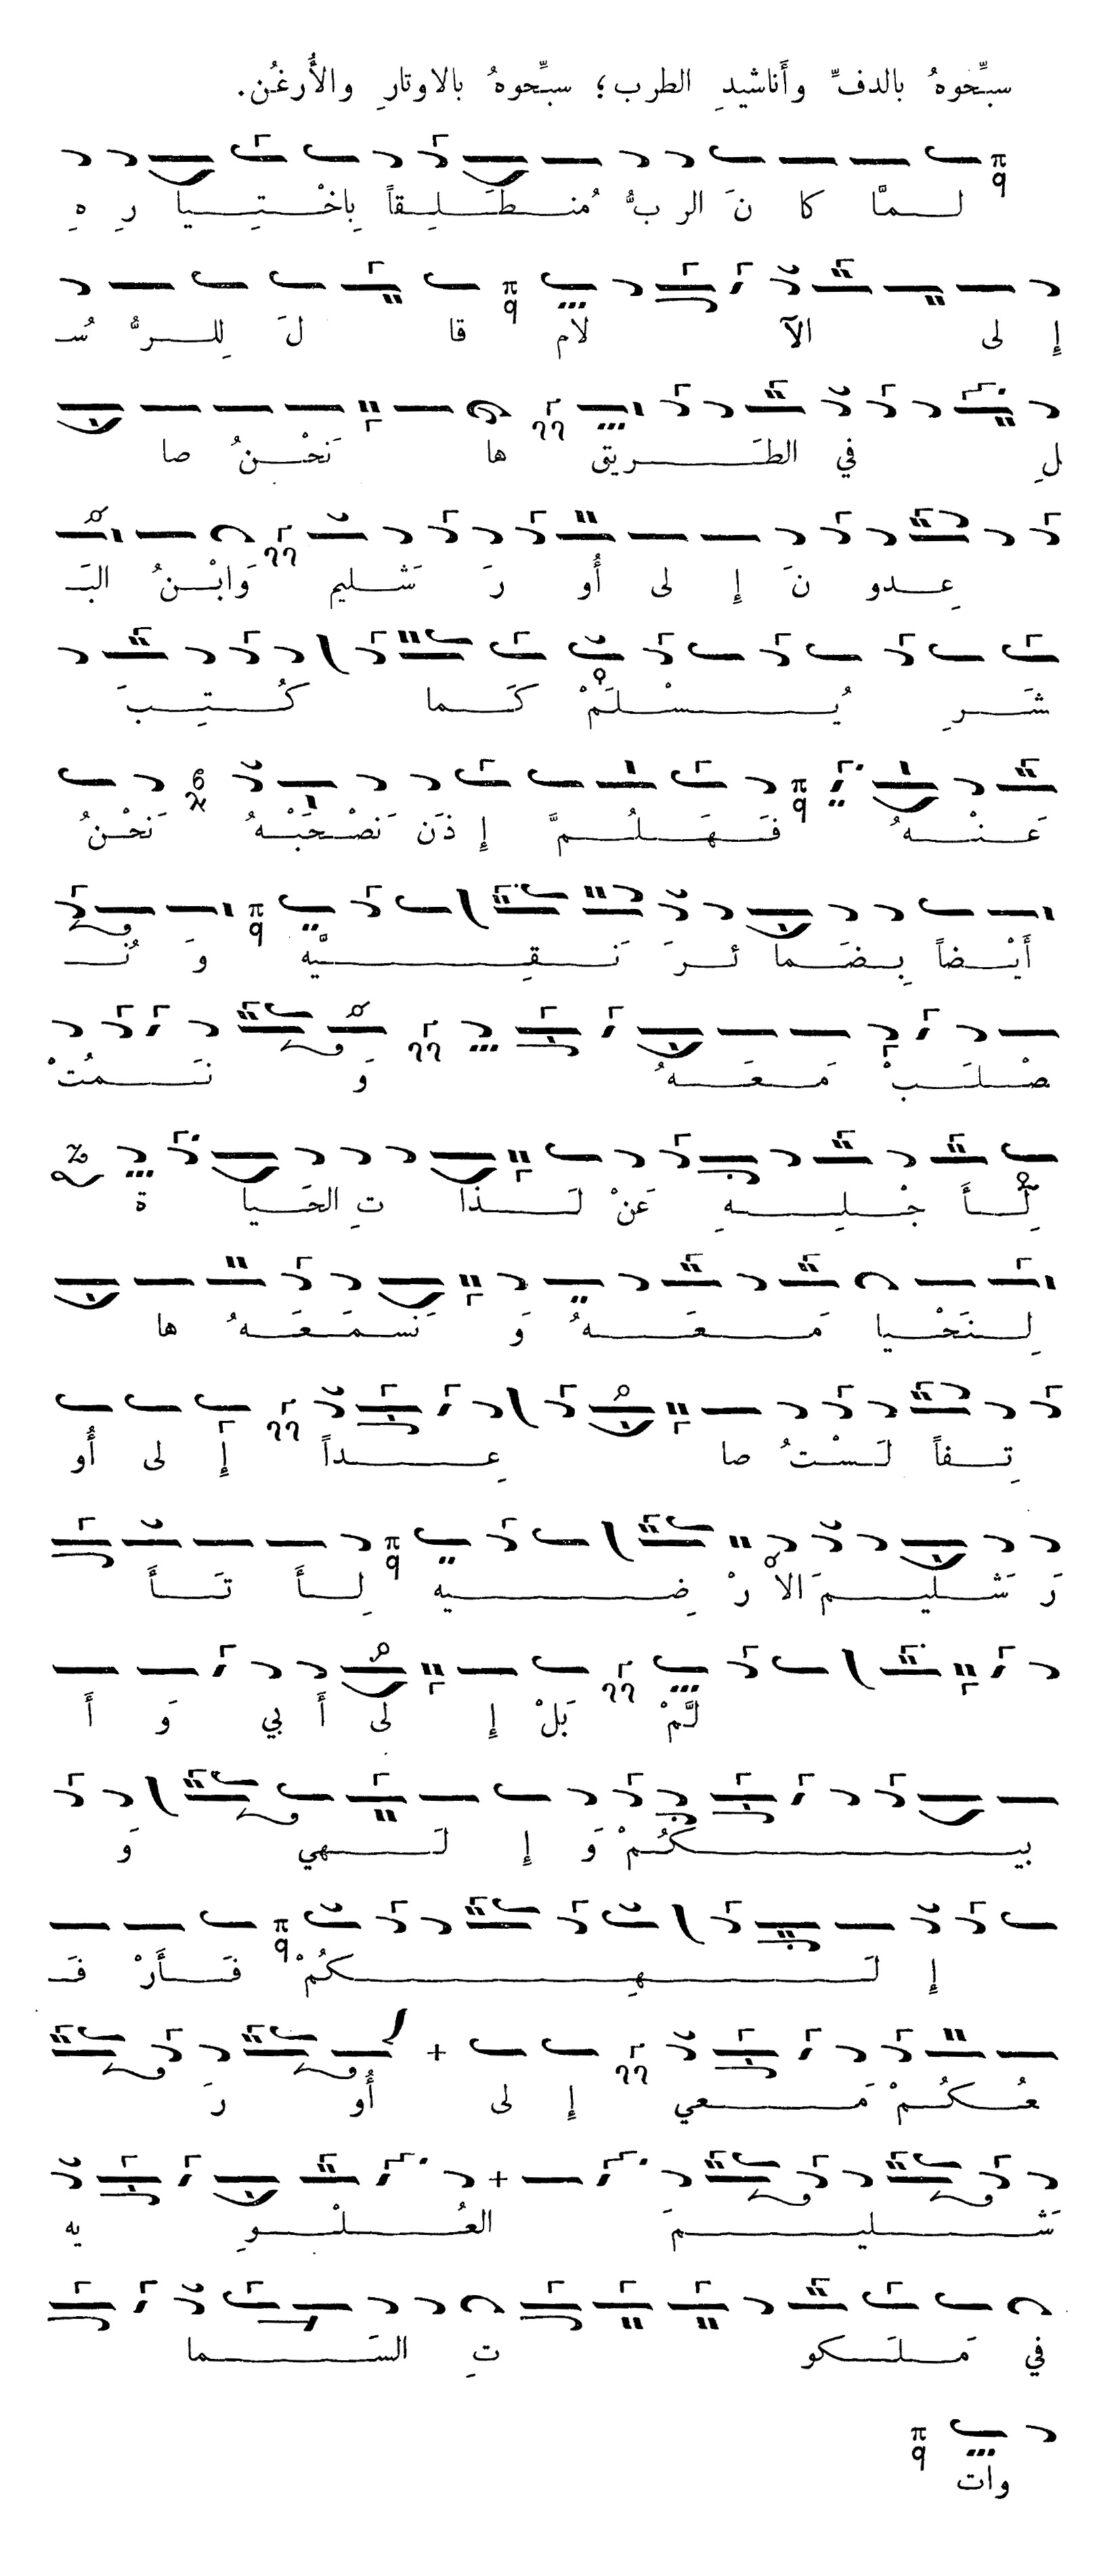 سبِّحوهُ بالدفِّ وأَناشيدِ الطرب؛ سبِّحوهُ بالاوتارِ والأُرغُن.
لـمَّا كا نَ الر بُّ مُنـطَـلِـقاً بِاخْـتِـيا رِ هِ
إِ لى الآ لام قا لَ لِلـرُّ سُـ
لِ في الطَـريق ها نَحْـنُ صا
عِـدو نَ إِ لى أُو رَ شَـليم وَابْـنُ البَـ
شَـرِ يُـسْـلَمْ كَـما كُـتِـبَ
عَـنْـهُ فَـهَـلُـمَّ إِ ذَن نَصْـحَبْـهُ نَحْـنُ
أَيْـضاً بِـضَـما ئـرَ نَـقِـيَّه وَ نُـ
صْـلَـبْ مَـعَـهُ وَ نَـمُتْ
لِأَ جْـلِـهِ عَنْ لَـذا تِ الحَـيا ة
لِـنَحْـيا مَـعَـهُ وَ نَسـمَـعَـهُ ها
تِـفاً لَـسْـتُ صا عِـداً إِ لى أُو
رَ شَـليـمَ الا رْ ضِـيه لِـأَ تَـأَ
لَّمْ بَلْ إِ لى أَ بي وَ أَ
بيـكُـمْ وَ إِ لَـهي وَ
إِ لَـهِـكُمْ فَـأَرْ فَـ
عُـكُـمْ مَـعي إِ لى أُو رَ
شَـليـمَ العُـلْـوِ يه
في مَـلَـكو تِ السَـما
وات